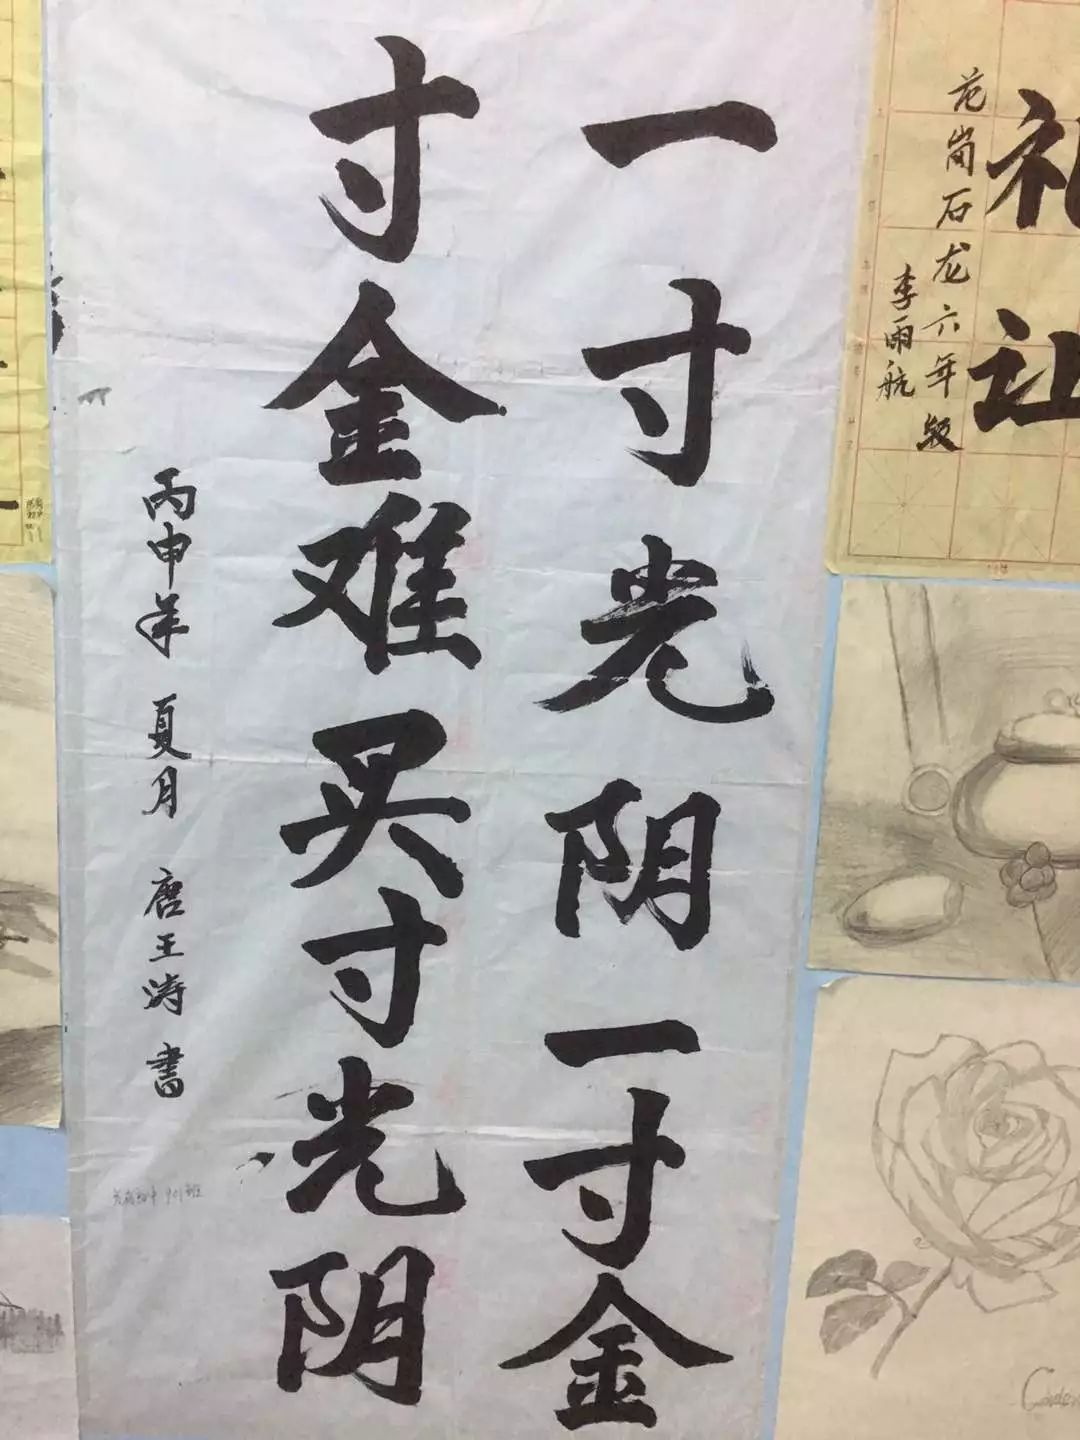 一寸光阴一寸金
寸金难买寸光阴
丙申年 夏月 唐王涛 書
礼让
花岗石龙六年级
李雨航
901班